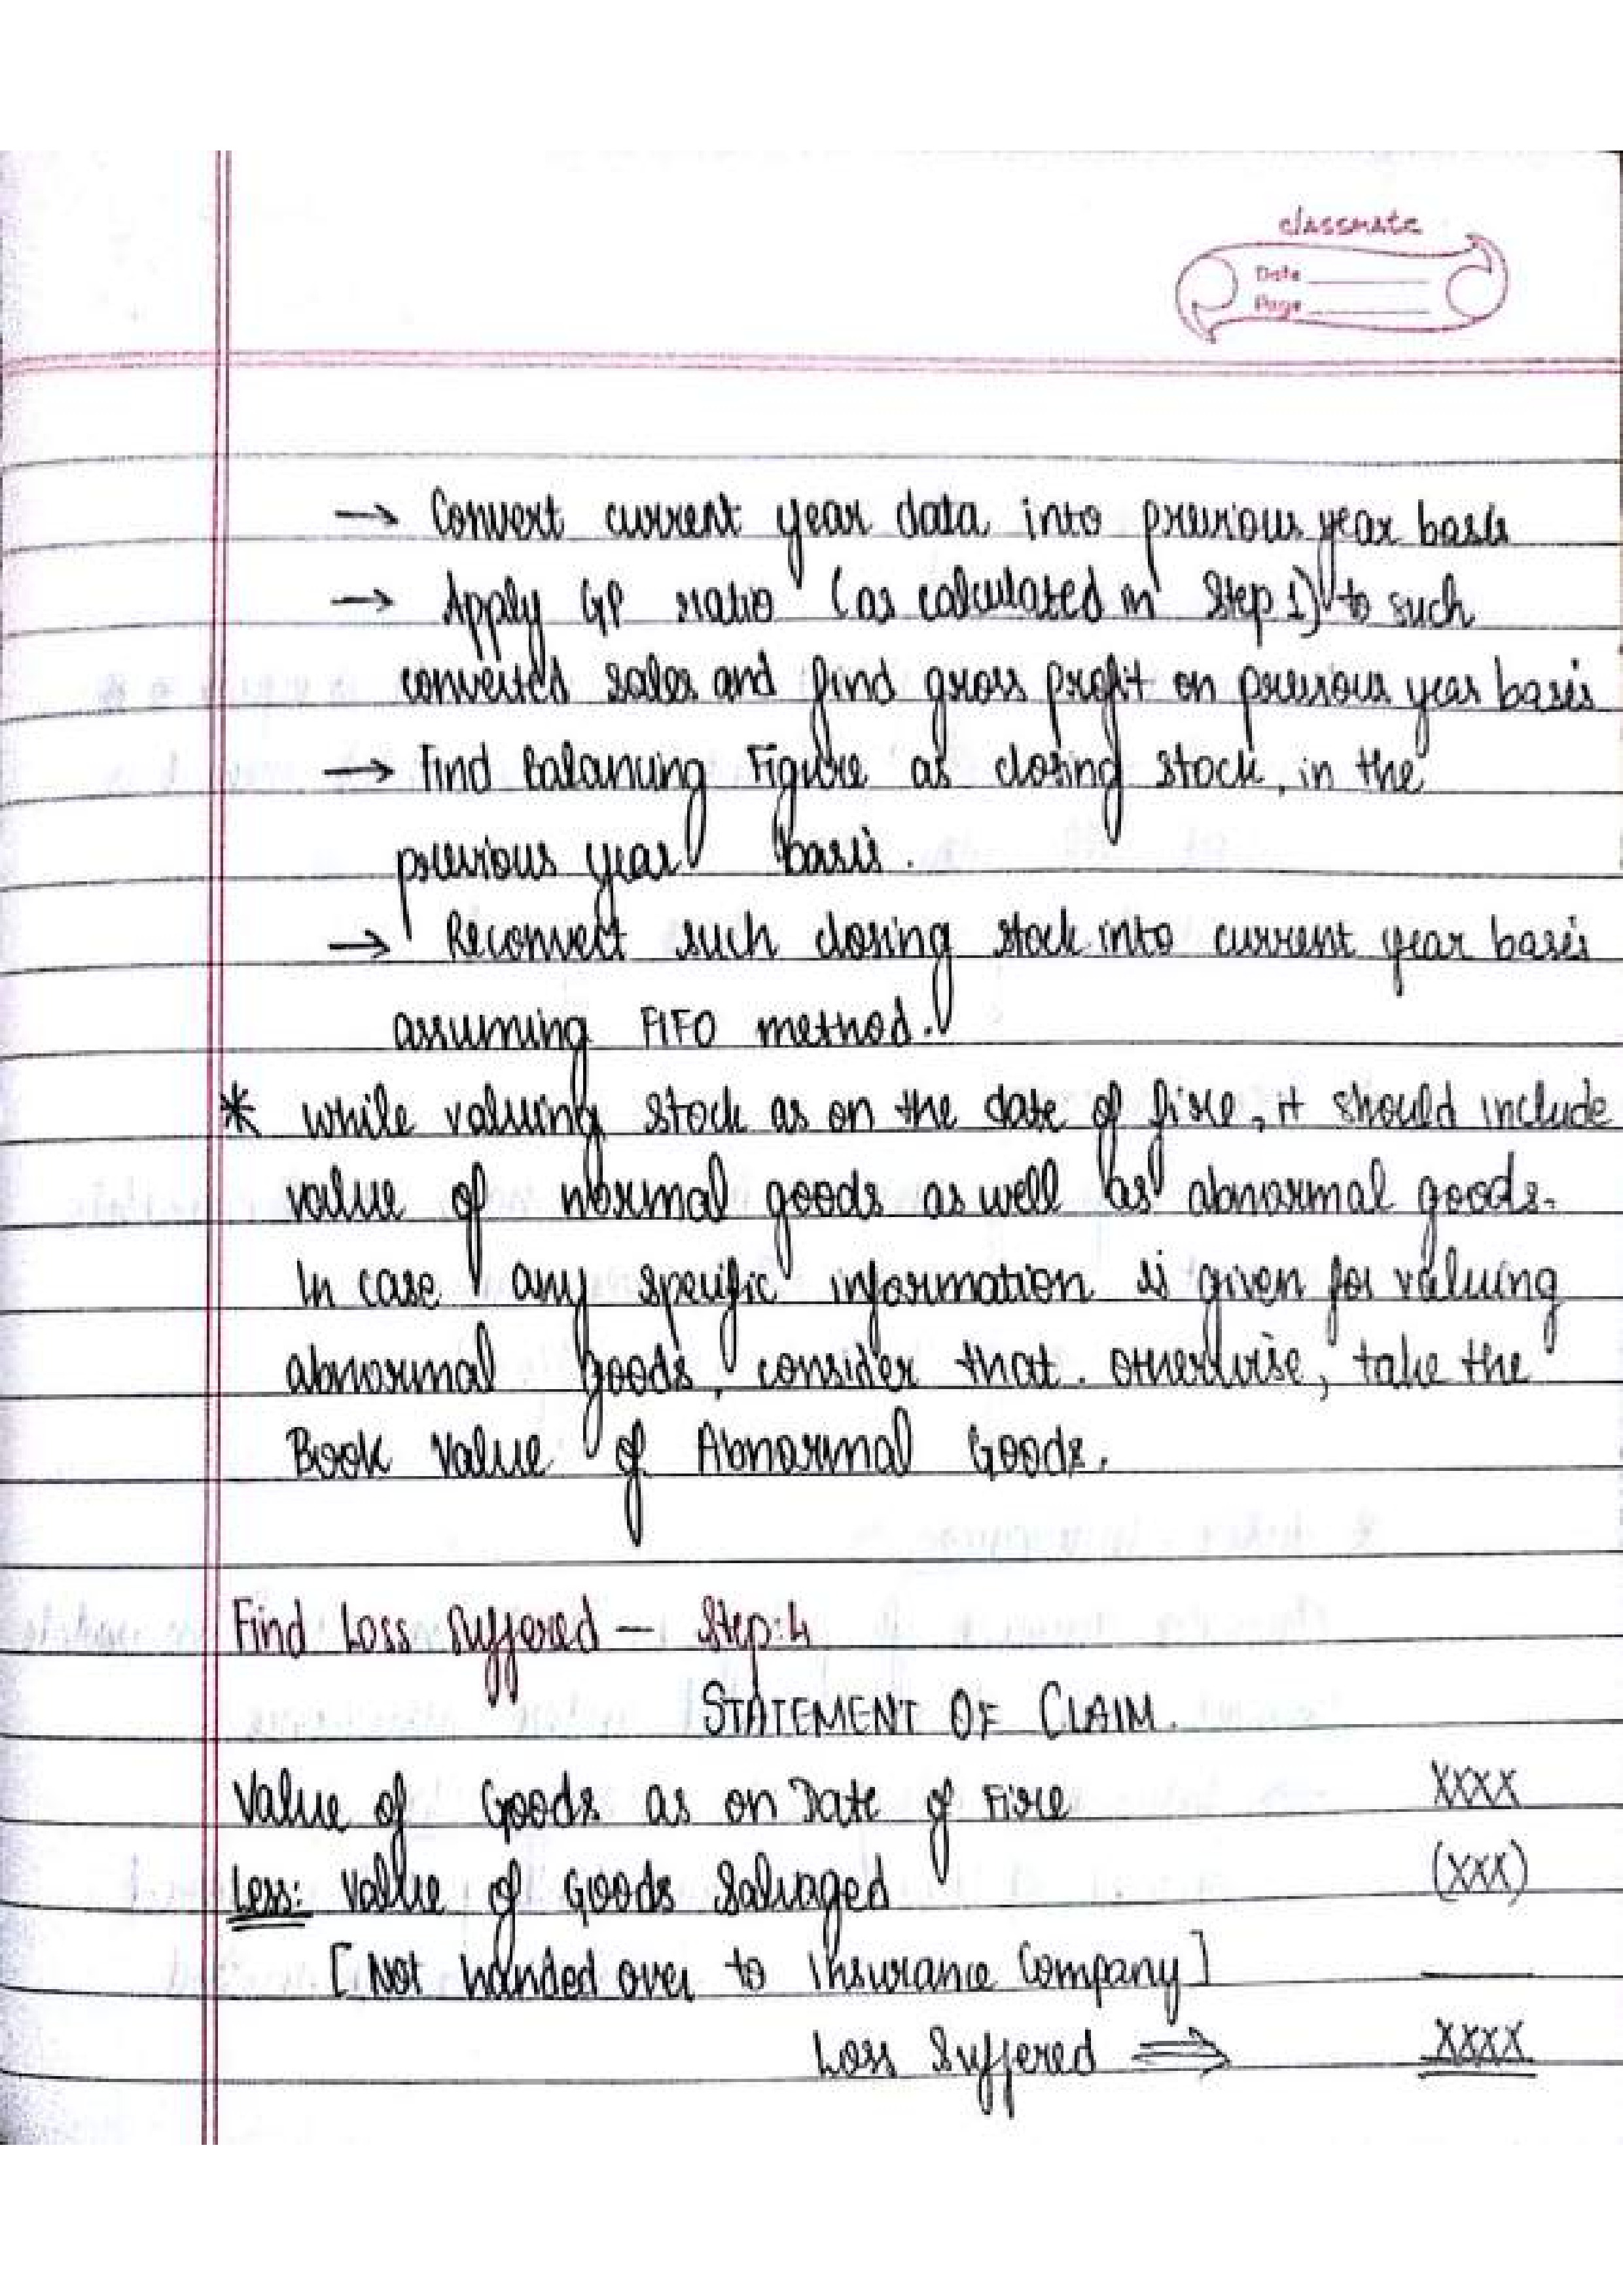 classmate
Date
Page
→ Convert current year data into previous year basis
→ Apply GP ratio (as calculated in Step 1) to such
converted sales and find gross profit on previous year basis
→ Find Balancing Figure as closing stock, in the
previous year basis.
→ Reconvert such closing stock into current year basis
assuming FIFO method.
* While valuing stock as on the date of fire, it should include
value of normal goods as well as abnormal goods.
In case any specific information is given for valuing
abnormal goods, consider that. otherwise, take the
Book Value of Abnormal Goods.
Find Loss Suffered — Step:4
STATEMENT OF CLAIM.
Value of Goods as on Date of Fire XXXX
Less: Value of Goods Salvaged (XXX)
[Not handed over to Insurance Company]
Loss Suffered ⇒ XXXX